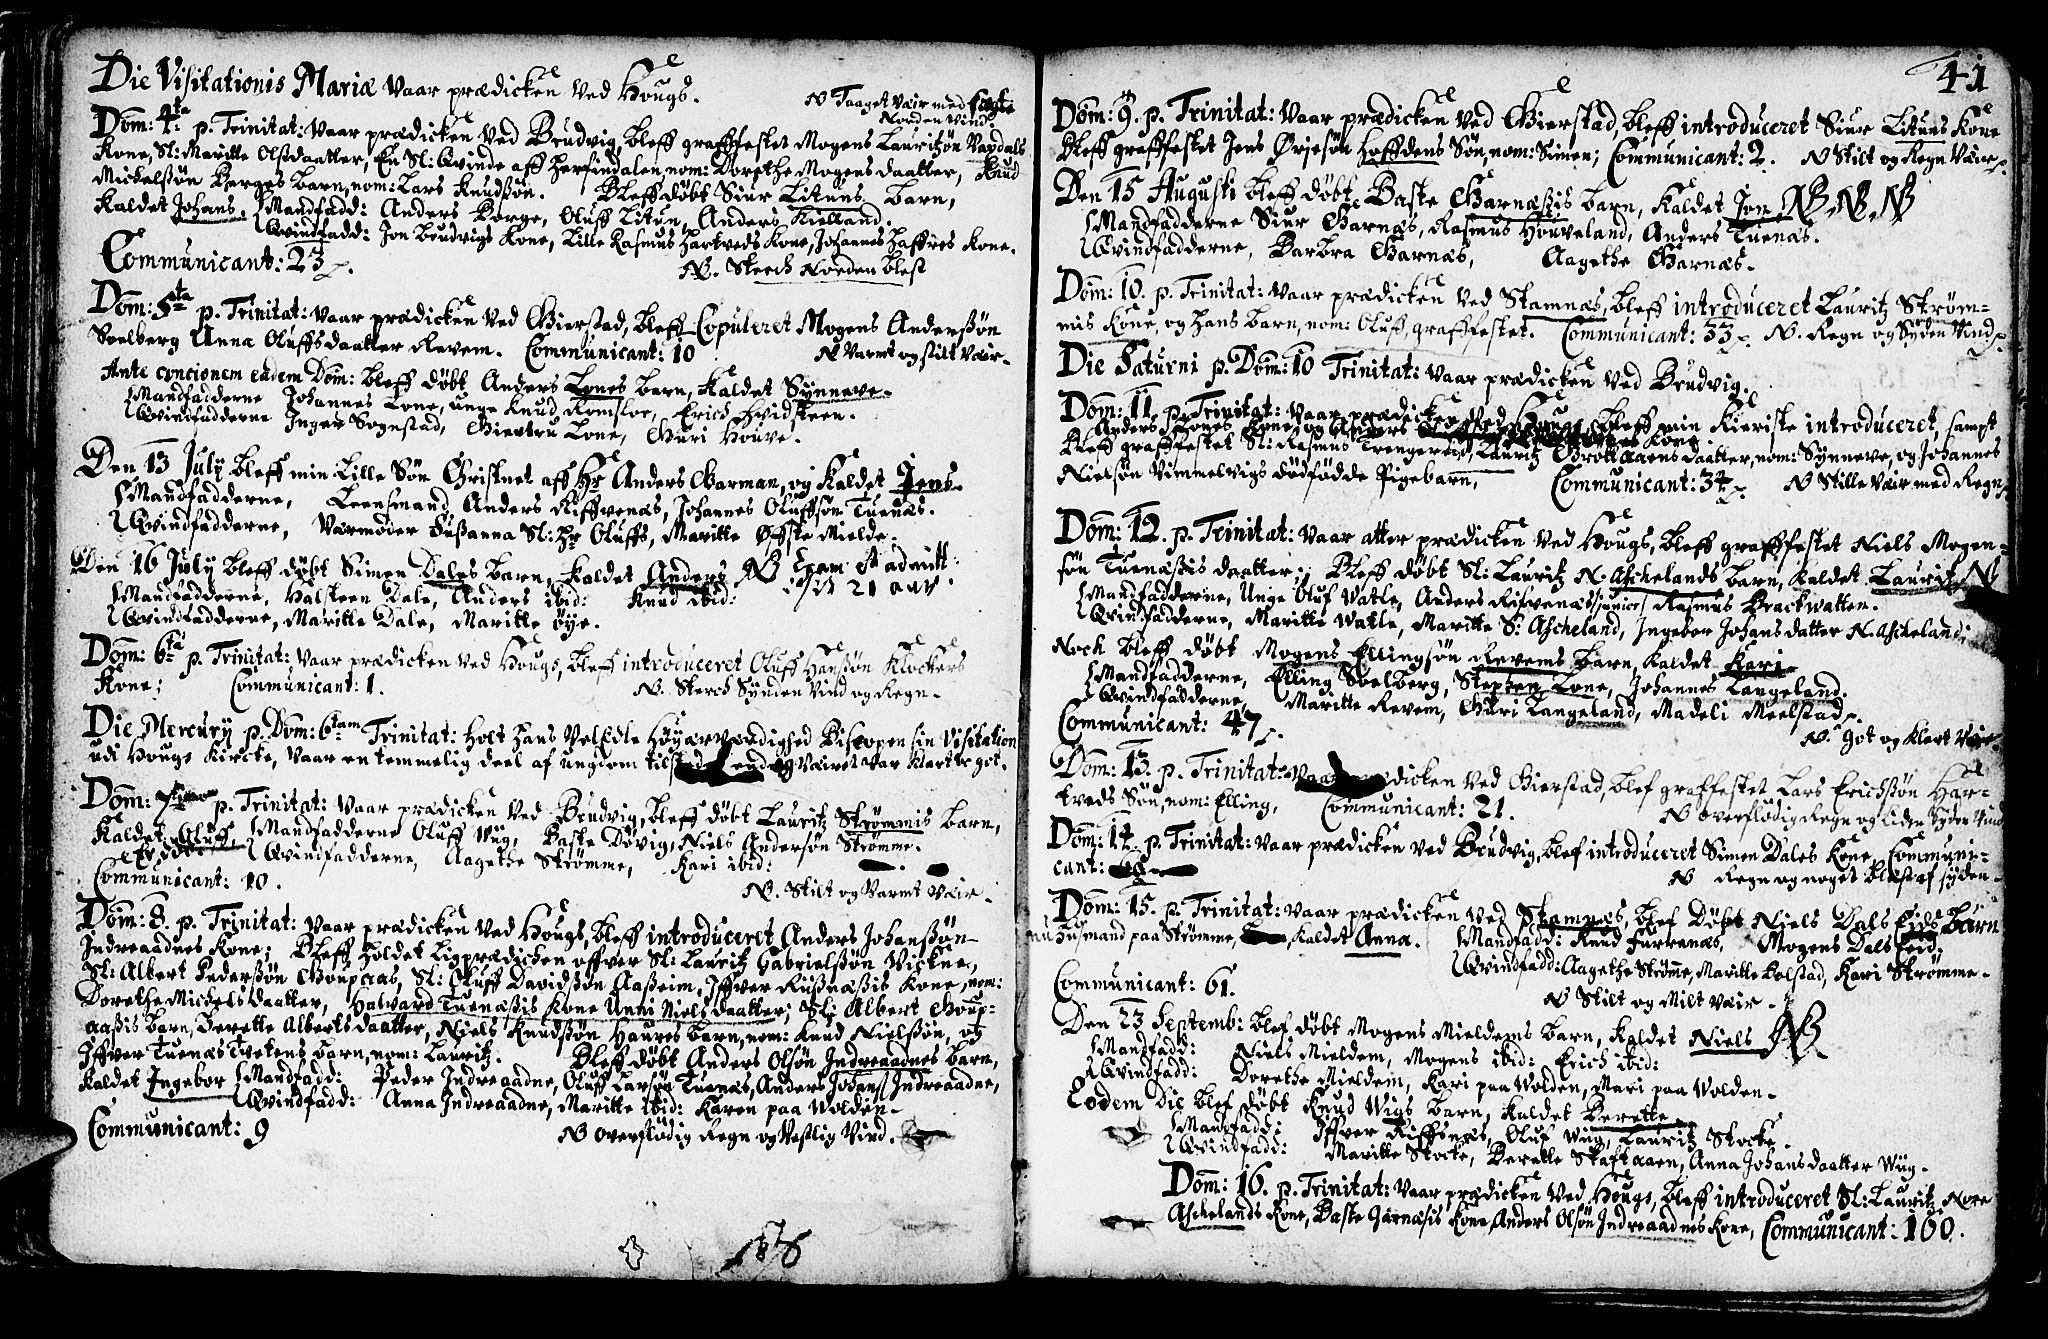 Die Visitationis Mariæ Vaar prædicken Ved Hougs.
N Taaget Vair med sagte
Norden Vind
Dom: 4ta p. Trinitat: Vaar prædicken Ved Brudvig, bleff grafffestet Mogens Lauritzøn Vaxdals
Kone, Sl: Maritte Olsdaatter, En Sl: Qvinde aff Herfindalen, nom: Dorethe Mogens daatter, Knud
Michelssøn Berges barn, nom: Lars Knudssøn. Bleff døbt Siur Lituns barn,
Kaldet Johans, Mandfadd: Anders Borge, Oluff Litun, Anders Kielland.
Qvindfadd: Jon Brudvigs Kone, Lille Rasmus Hartveds Kone, Johannes Haffres Kone.
Communicant: 23.
N. Sterch Norden blest
Dom: 5ta p. Trinitat: Vaar prædicken Ved Gierstad, bleff Copuleret Mogens Anderssøn
Soelberg Anna Oluffsdaatter Revem. Communicant: 10
N Varmt og stilt Vair.
Ante concionem eadem Dom: bleff døbt Anders Lones barn, Kaldet Synneve.
Mandfadderne Johannes Lone, unge Knud Romslor, Erich Hvidsteen.
Qvindfadderne Inger Sognstad, Giertru Lone, Guri Houve.
Den 13 July bleff min Lille Søn Christnet aff Hr Anders Garman, og Kaldet Jens.
Mandfadderne, Leensmand, Anders Riffvenæs, Johannes Oluffsøn Tuenæs.
Qvindfadderne, Værmoder Sussanna Sl: Hr Oluffs, Maritte Øffste Mielde.
Den 16 July bleff døbt Simen Dales barn, Kaldet Anders NB
Mandfadderne, Halsteen Dale, Anders ibid: Knud ibid:
Qvindfadderne, Maritte Dale, Maritte Øye.
Dom: 6ta p. Trinitat: Vaar prædicken Ved Hougs, bleff introduceret Oluff Hanssøn Klockers
Kone; Communicant: 1.
N. Sterch Synden Vind og Regn.
Die Mercury p. Dom: 6tam Trinitat: Holt Hans VelEdle Høyærværdighed Biskopen sin Visitation
udi Hougs Kircke, Vaar en temmelig deel af ungdom Været Var Klart og got.
Dom: p. Trinitat: Vaar prædicken Ved Brudvig, bleff døbt Lauritz Strømmis barn,
Kaldet Oluff, Mandfadderne Oluff Wüg, Baste Døvig, Niels Andersøn Strømme.
Qvindfadderne, Aagethe Strømme, Kari ibid:
Communicant: 10.
N. Stilt og Varmt Vair.
Dom: 8. p. Trinitat: Vaar prædicken Ved Hougs, bleff introduceret Anders Johanssøn
Indreaadnes Kone; Bleff Holdet Ligprædicken offver Sl: Lauritz Gabrielssøn Vickne,
Sl: Albert Pederssøn Goupaas, Sl: Oluff Davidssøn Aasseim, Iffver Russnæssis Kone, nom:
Dorethe Michelsdaatter, Halward Tuenæssis Kone Unni Nielsdaatter; Sl: Albert Goup-
aassis barn, Berette Alberts daatter, Niels Knudssøn Haures barn, nom: Knud Nielssøn, og
Iffver Tuenæs Tvetens barn, nom: Lauritz. Bleff døbt Anders Olsøn Indreaadnes barn,
Kaldet Ingebor Mandfadd: Peder Indreaadne, Oluff Larsøn Tuenæs, Anders Johans Indreaadne,
Qvindfadd: Anna Indreaadne, Maritte ibid: Karen paa Wolden.
Communicant: 9
N overflødig Regn og Vestlig Vind.
41
Dom: 9. p. Trinitat: Vaar prædicken Ved Gierstad, bleff introduceret Siur Lituns Kone
Bleff grafffestet Jens Ørjesøn Hoffdens Søn, nom: Simen; Communicant: 2. N Stilt og Regn Vair
Den 15 Augusti bleff døbt Baste Garnæssis barn, Kaldet Jon, NB. NB. NB
Mandfadderne Siur Garnæs, Rasmus Houveland, Anders Tuenæs.
Qvindfadderne, Barbra Garnæs, Aagethe Garnæs.
Dom: 10. p. Trinitat: Vaar prædicken Ved Stamnæs, bleff introduceret Lauritz Strøm-
mis Kone, og hans barn, nom: Oluff, grafffestet. Communicant: 33. N. Regn og Syden Vind.
Die Saturni p. Dom: 10 Trinitat: Vaar prædicken Ved Brudvig.
Dom: 11. p. Trinitat: Vaar prædicken Ved Hougs, bleff min Kieriste introduceret, sampt
Anders Lones Kone, og Anders Kone.
Bleff grafffestet Sl: Rasmus Trengereid, Lauritz Brottaaens daatter, nom: Synneve, og Johannes
Nielsøn Vimmelvigs dødfødde Pigebarn, Communicant: 34. N Stille Vair med Regn
Dom: 12. p. Trinitat: Vaar atter prædicken Ved Hougs, bleff grafffestet Niels Mogen-
søn Tuenæssis daatter; Bleff døbt Sl: Lauritz N. Aschelands barn, Kaldet Lauritz N
Mandfadderne, Unge Oluf Watle, Anders Rifvenæs junior, Rasmus Brackwatten.
Qvindfadderne, Maritte Watle, Maritte S. Ascheland, Ingebor Johansdatter N. Ascheland.
Noch bleff døbt Mogens Ellingsøn Revems barn, Kaldet Kari
Mandfadderne, Elling Soelberg, Stephen Lone, Johannes Langeland.
Qvindfadderne, Maritte Revem, Guri Langeland, Madeli Meelstad.
Communicant: 47.
N. got og Klart Vair
Dom: 13. p. Trinitat: Vaar prædicken Ved Gierstad, blef graffestet Lars Erichssøn Har-
tveds Søn, nom: Elling, Communicant: 21.
N Overflødig Regn og liden Syden Vind
Dom: 14. p. Trinitat: Vaar prædicken Ved Brudvig, blef introduceret Simen Dales Kone, Communi-
cant:
N Regn og noget blæst af syden.
Dom: 15. p. Trinitat: Vaar prædicken Ved Stamnæs, blef Døbt Niels Dals Eids barn
nu Husmand paa Strømme, Kaldet Anna. Mandfadd: Knud Furrenæs, Mogens Dals Eid.
Qvindfadd: Aagethe Strømme, Maritte Kolstad, Kari Strømme.
Communicant: 61.
N Stilt og Milt Vair.
Den 23 Septemb: blef døbt Mogens Mieldems barn, Kaldet Niels NB
Mandfadd: Niels Mieldem, Mogens ibid: Erich ibid:
Qvindfadd: Dorethe Mieldem, Kari paa Wolden, Mari paa Wolden.
Eodem Die blef døbt Knud Wigs barn, Kaldet Berette
Mandfadd: Iffver Riffsnæs, Oluf Wüg, Lauritz Stocke.
Qvindfadd: Maritte Stocke, Berette Skaftaaen, Anna Johansdaatter Wüg.
Dom: 16. p. Trinitat: Vaar prædicken Ved Hougs, bleff introduceret Sl: Lauritz Nore
Aschelands Kone, Baste Jarnæsis Kone, Anders Olsøn Indreaadnes Kone, Communicant: 160.